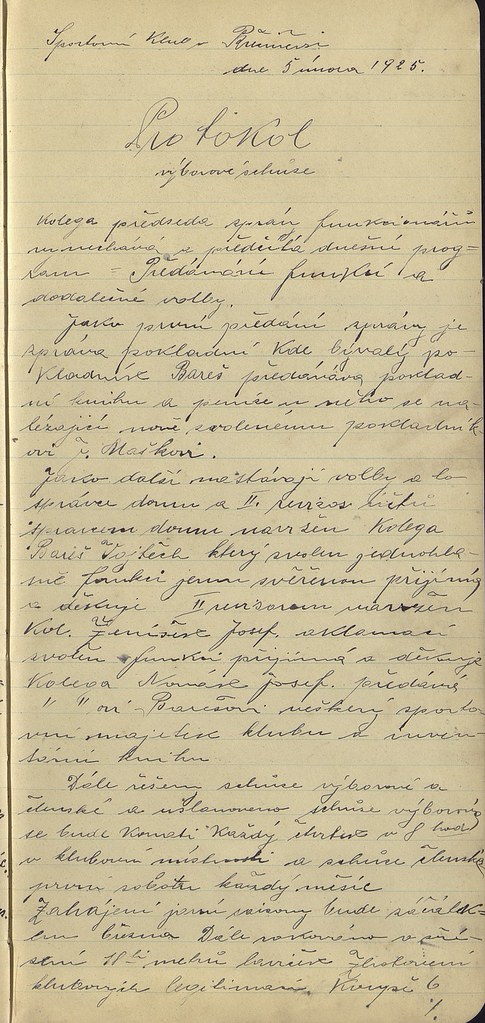 Sportovní Klub v
dne 5 února 1925.
Protokol
výborové schůse
Kolega předseda správ funkcionářům
z předčítá dnešní prog-
ram = Předávání funkcí a
dodatečné volby.
Jako první předání správy je
správa pokladní Kde bývalý po-
kladník Bareš předává poklad-
ní knihu a peníse u něho se na-
lézající nově svolenému pokladník-
ovi č. Maškovi.
Jako další nastávají volby a to
správce domu a II. revisor účtů
správcem domu navržen Kolega
Bareš Vojtěch který svolen jednohla-
sně funkci jemu svěřenou přijímá
a děkuje II revisorem navržen
Kol. Ženíšek Josef. aklamací
svolen funkci přijímá a děkuje
Kolega Josef. předává
" " ovi Barešovi veškerý sporto-
vní majetek klubu a inven-
tární knihu
Dále řešeny schůse výborové a
členské a ustanoveno schůse výborová
se bude Konati Každý čtvrtek v 8 hod
v klubovní místnosti a schůse členská
první sobotu každý měsíc
Zahájení jarní saisony bude začátk-
em března Dále rokováno o
metrů laviček Zhotovení
klubových legitimací 6